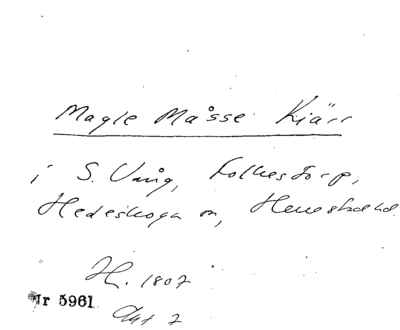 Magle Måsse Kiärr
i S. Vång, Folkestorp,
Hedeskoga sn, Herrestad hd
H. 1807
Nr 5961
Akt 7